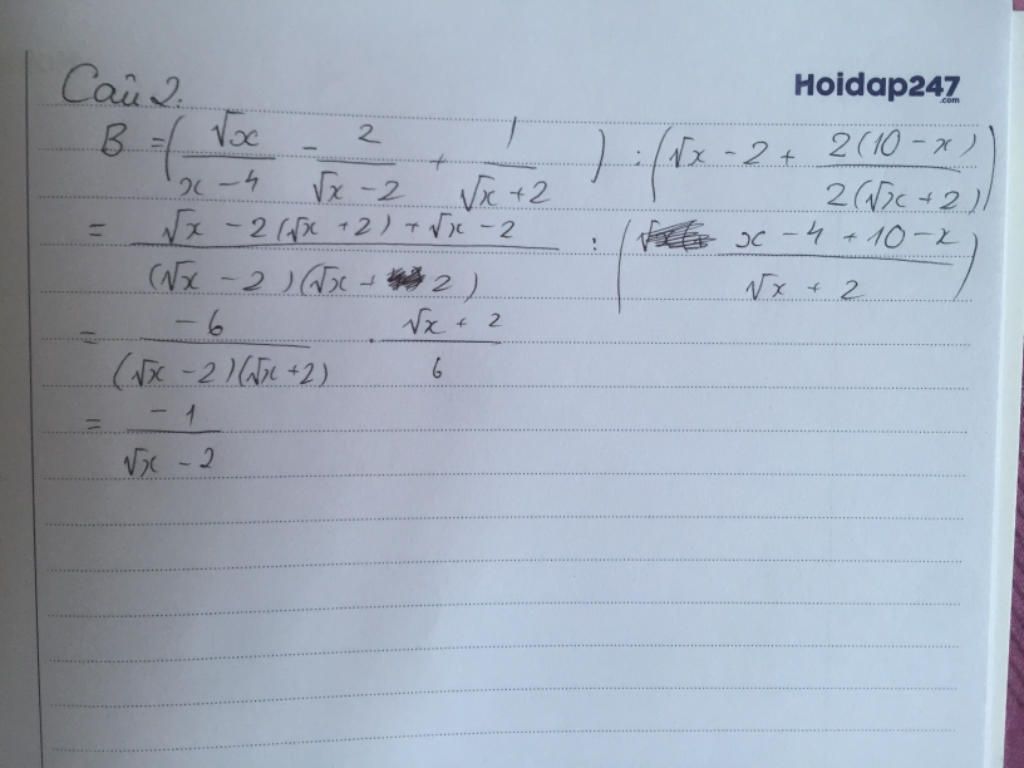 Hoidap247
.com
Câu 2:
B = ( √x / x - 4 - 2 / √x - 2 + 1 / √x + 2 ) : ( √x - 2 + 2(10 - x) / 2(√x + 2) )
= √x - 2(√x + 2) + √x - 2 / (√x - 2)(√x + 2) : ( x - 4 + 10 - x / √x + 2 )
= -6 / (√x - 2)(√x + 2) . √x + 2 / 6
= -1 / √x - 2